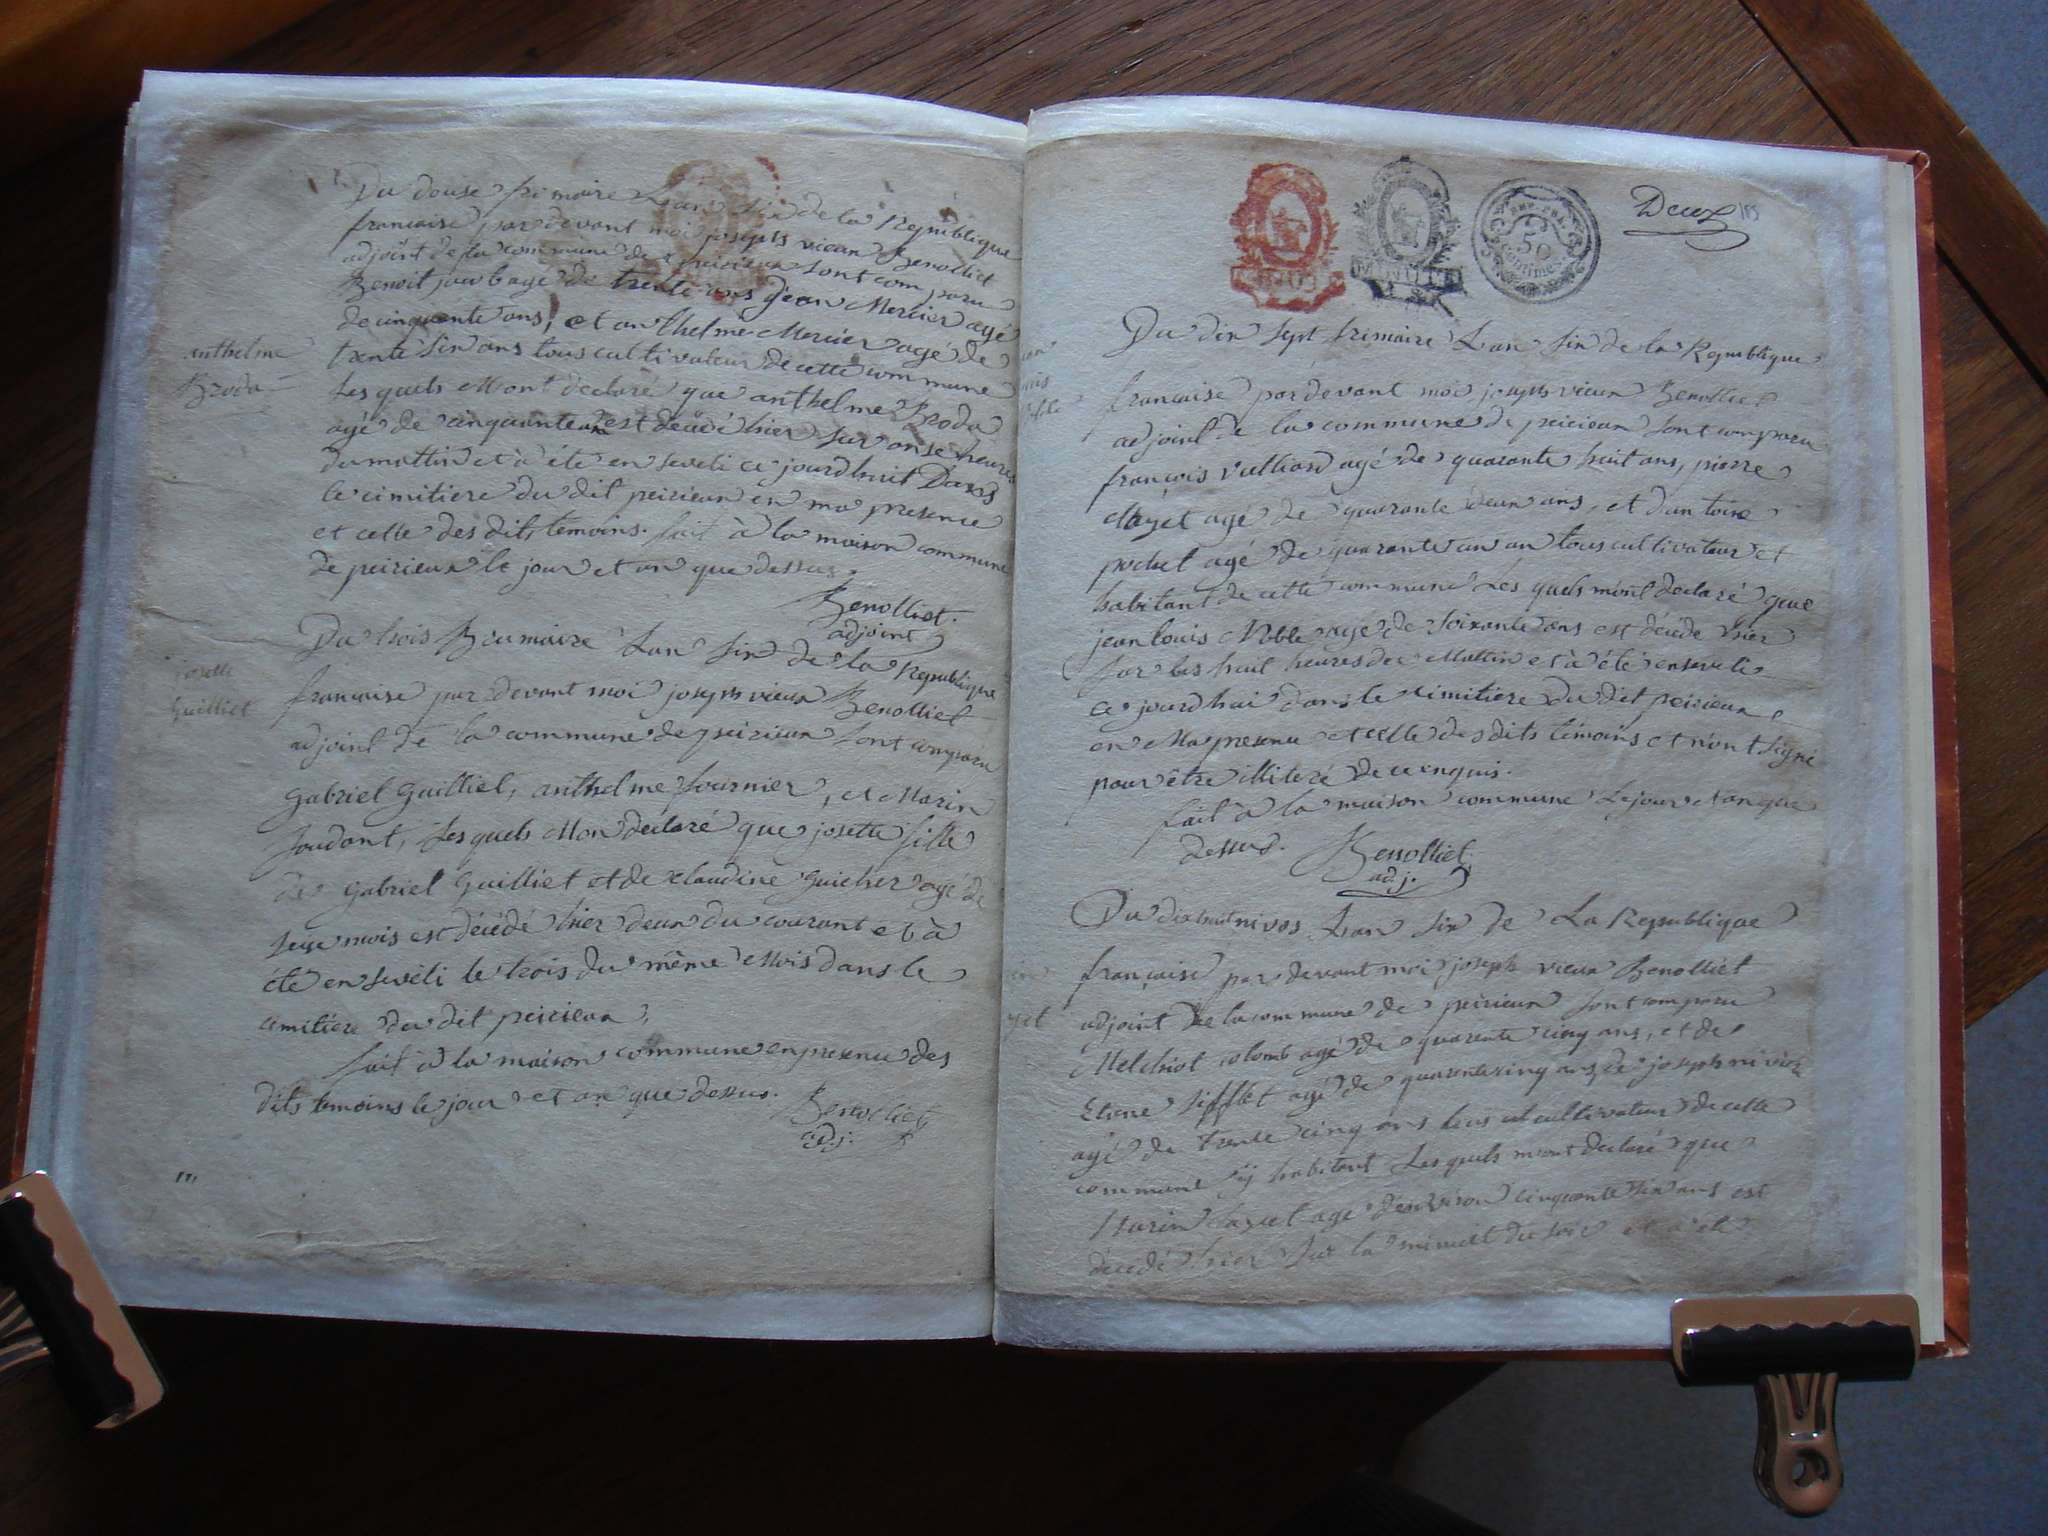 Du douse frimaire Lan six de la Republique
francaise par devant moi joseph vieux Benolliet
adjoint de la commune de peirieux sont comparu
Benoit agé de trente ans jean Mercier agé
de cinquante ans, et anthelme Mercier agé de
trente six ans tous cultivateur de cette commune
anthelme
Broda
Les quels Mont declaré que anthelme Broda
agé de cinquante est decedé hier sur onse heures
du mattin et à été enseveli ce jourdhuit Dans
le cimitiere du dit peirieux en ma presence
et celle des dits temoins. fait à la maison commune
de peirieux le jour et an que dessus.
Benolliet.
adjoint
Du trois Brumaire Lan six de la Republique
josette
Guilliet
francaise par devant moi joseph vieux Benolliet
adjoint de la commune de peirieux sont comparu
Gabriel Guilliet, anthelme fournier, et Marin
Les quels Mon declaré que josette fille
de Gabriel Guilliet et de claudine Guicher agé de
mois est décédé hier deux du courant et à
été enseveli le trois du même Mois dans le
cimitiere du dit peirieux,
fait à la maison commune en presence des
dits temoins le jour et an que dessus.
Benolliet
adj.
REP. FRA.
50
centimes
Deux
185
Du dix sept frimaire Lan six de la Republique
francaise par devant moi joseph vieux Benolliet
adjoint de la commune de peirieux sont comparu
françois Vulliard agé de quarante huit ans, pierre
clayet agé de quarante deux ans, et dantoine
pochet agé de quarante un an tous cultivateur et
habitant de cette commune Les quels mont declaré que
jean louis Noble agé de soixante ans est décédé hier
sur les huit heures du Mattin et à été enseveli
ce jourdhui dans le cimitiere du dit peirieux
en Ma presence et celle des dits témoins et nont signé
pour être illiteré de ce enquis.
fait à la maison commune Le jour et an que
dessus.
Benolliet
adj.
Du dixhuit nivos Lan six de La Republique
française par devant moi joseph vieux Benolliet
adjoint de la commune de peirieux sont comparu
Melchiot colomb agé de quarente cinq ans, et de
Etiene Sifflet agé de quarente cinq ans, de joseph
agé de trente cinq ans tous cultivateur de cette
commune y habitant Les quels mont declaré que
Marin clayet agé denviron cinquante six ans est
décédé hier sur la minuit du soir et à été